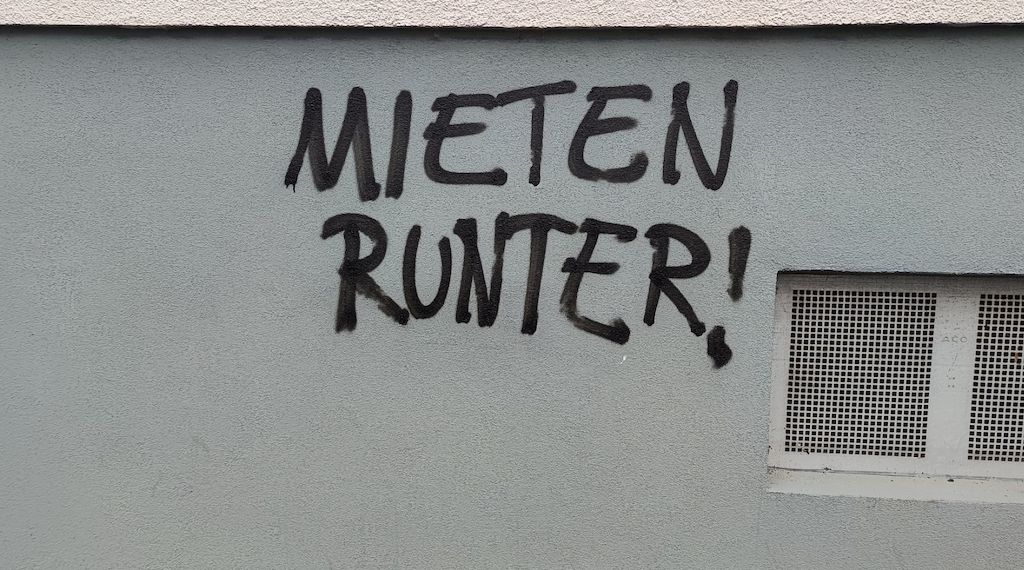 MIETEN
RUNTER!
ACO